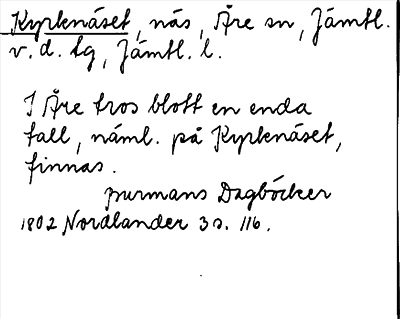 Kyrknäset, näs, Åre sn, Jämtl.
v. d. tg, Jämtl. l.
I Åre tros blott en enda
tall, näml. på Kyrknäset,
finnas.
Burmans Dagböcker
1802 Nordlander 3 s. 116.